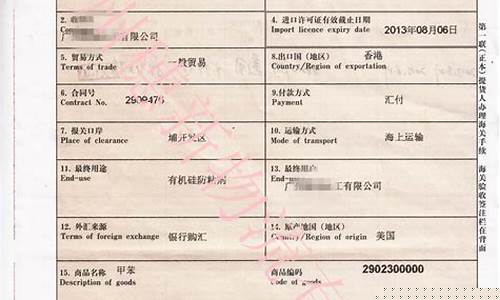 2. 收
4. 进口许可证有效截止日期
Import licence expiry date 2013年08月06日
广 有限公司
5. 贸易方式
Terms of trade 一般贸易
8. 出口国（地区） 香港
Country/Region of exportation
6. 合同号
Contract No. 2909476
9. 付款方式
Payment 汇付
7. 报关口岸
Place of clearance 埔开发区
10. 运输方式
Mode of transport 海上运输
11. 最终用途
End-use
有机硅防粘剂
13. 最终用户
End-user
广州 工有限公司
12. 外汇来源
Terms of foreign exchange 银行购汇
14. 原产地国（地区）
Country/Region of origin 美国
15. 商品名称 甲苯
Description of goods
商品编码 2902300000
Code of goods
第一联（正本）提货人办理海关手续 海关验收签注栏在背面